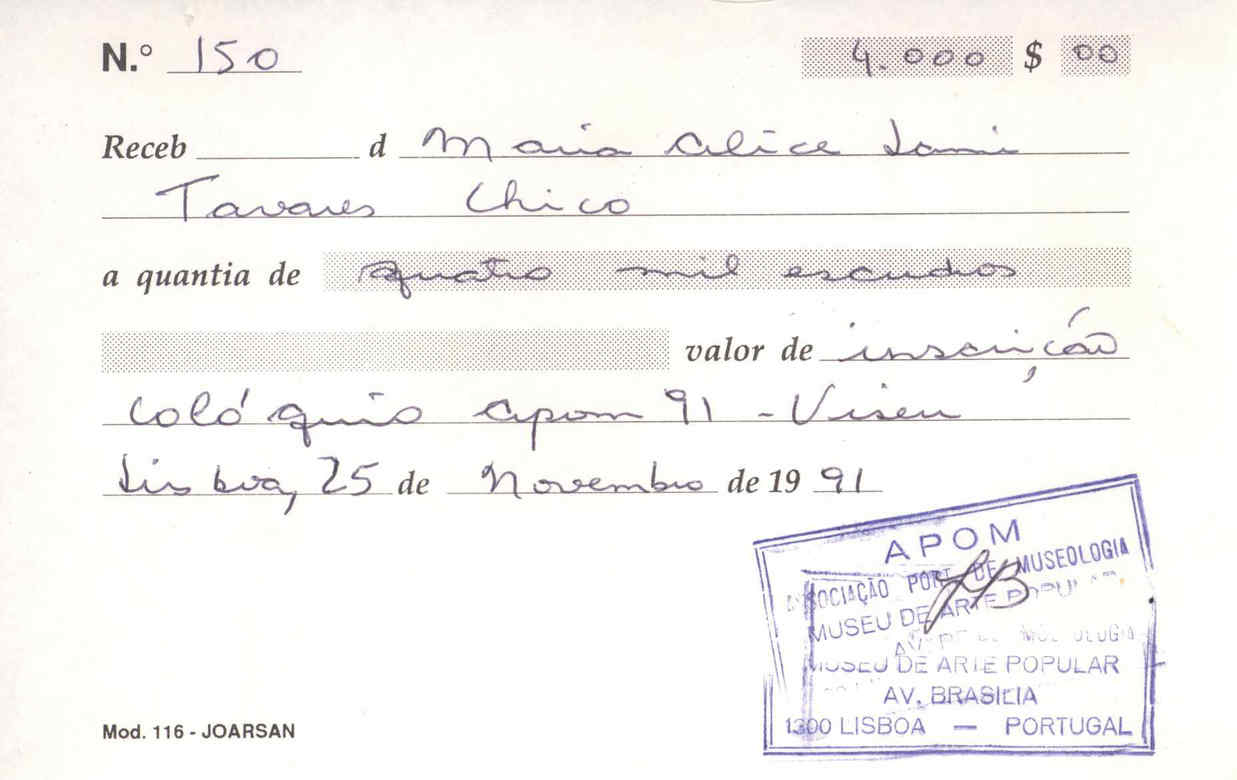 N.º 150 4.000 $ 00
Receb d Maria Alice Lami
Tavares Chico
a quantia de quatro mil escudos
valor de inscrição
colóquio apom 91 - Viseu
Lisboa, 25 de Novembro de 19 91
APOM
ASSOCIAÇÃO PORT. DE MUSEOLOGIA
MUSEU DE ARTE POPULAR
MUSEU DE ARTE POPULAR
AV. BRASILIA
1300 LISBOA — PORTUGAL
Mod. 116 - JOARSAN